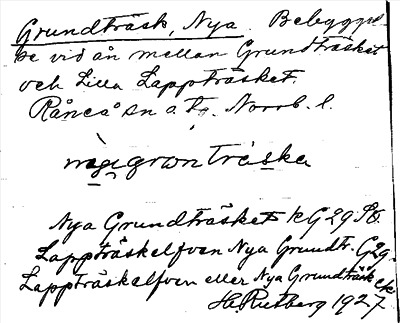 Grundträsk, Nya. Bebyggel-
se vid ån mellan Grundträsket
och Lilla Lappträsket.
Råneå sn o. tg. Norrb. l.
Nya Grundträsket kG 29
Lappträskelfven Nya Grundtr. G29.
Lappträskelfven eller Nya Grundträsk
H. Rutberg 1927